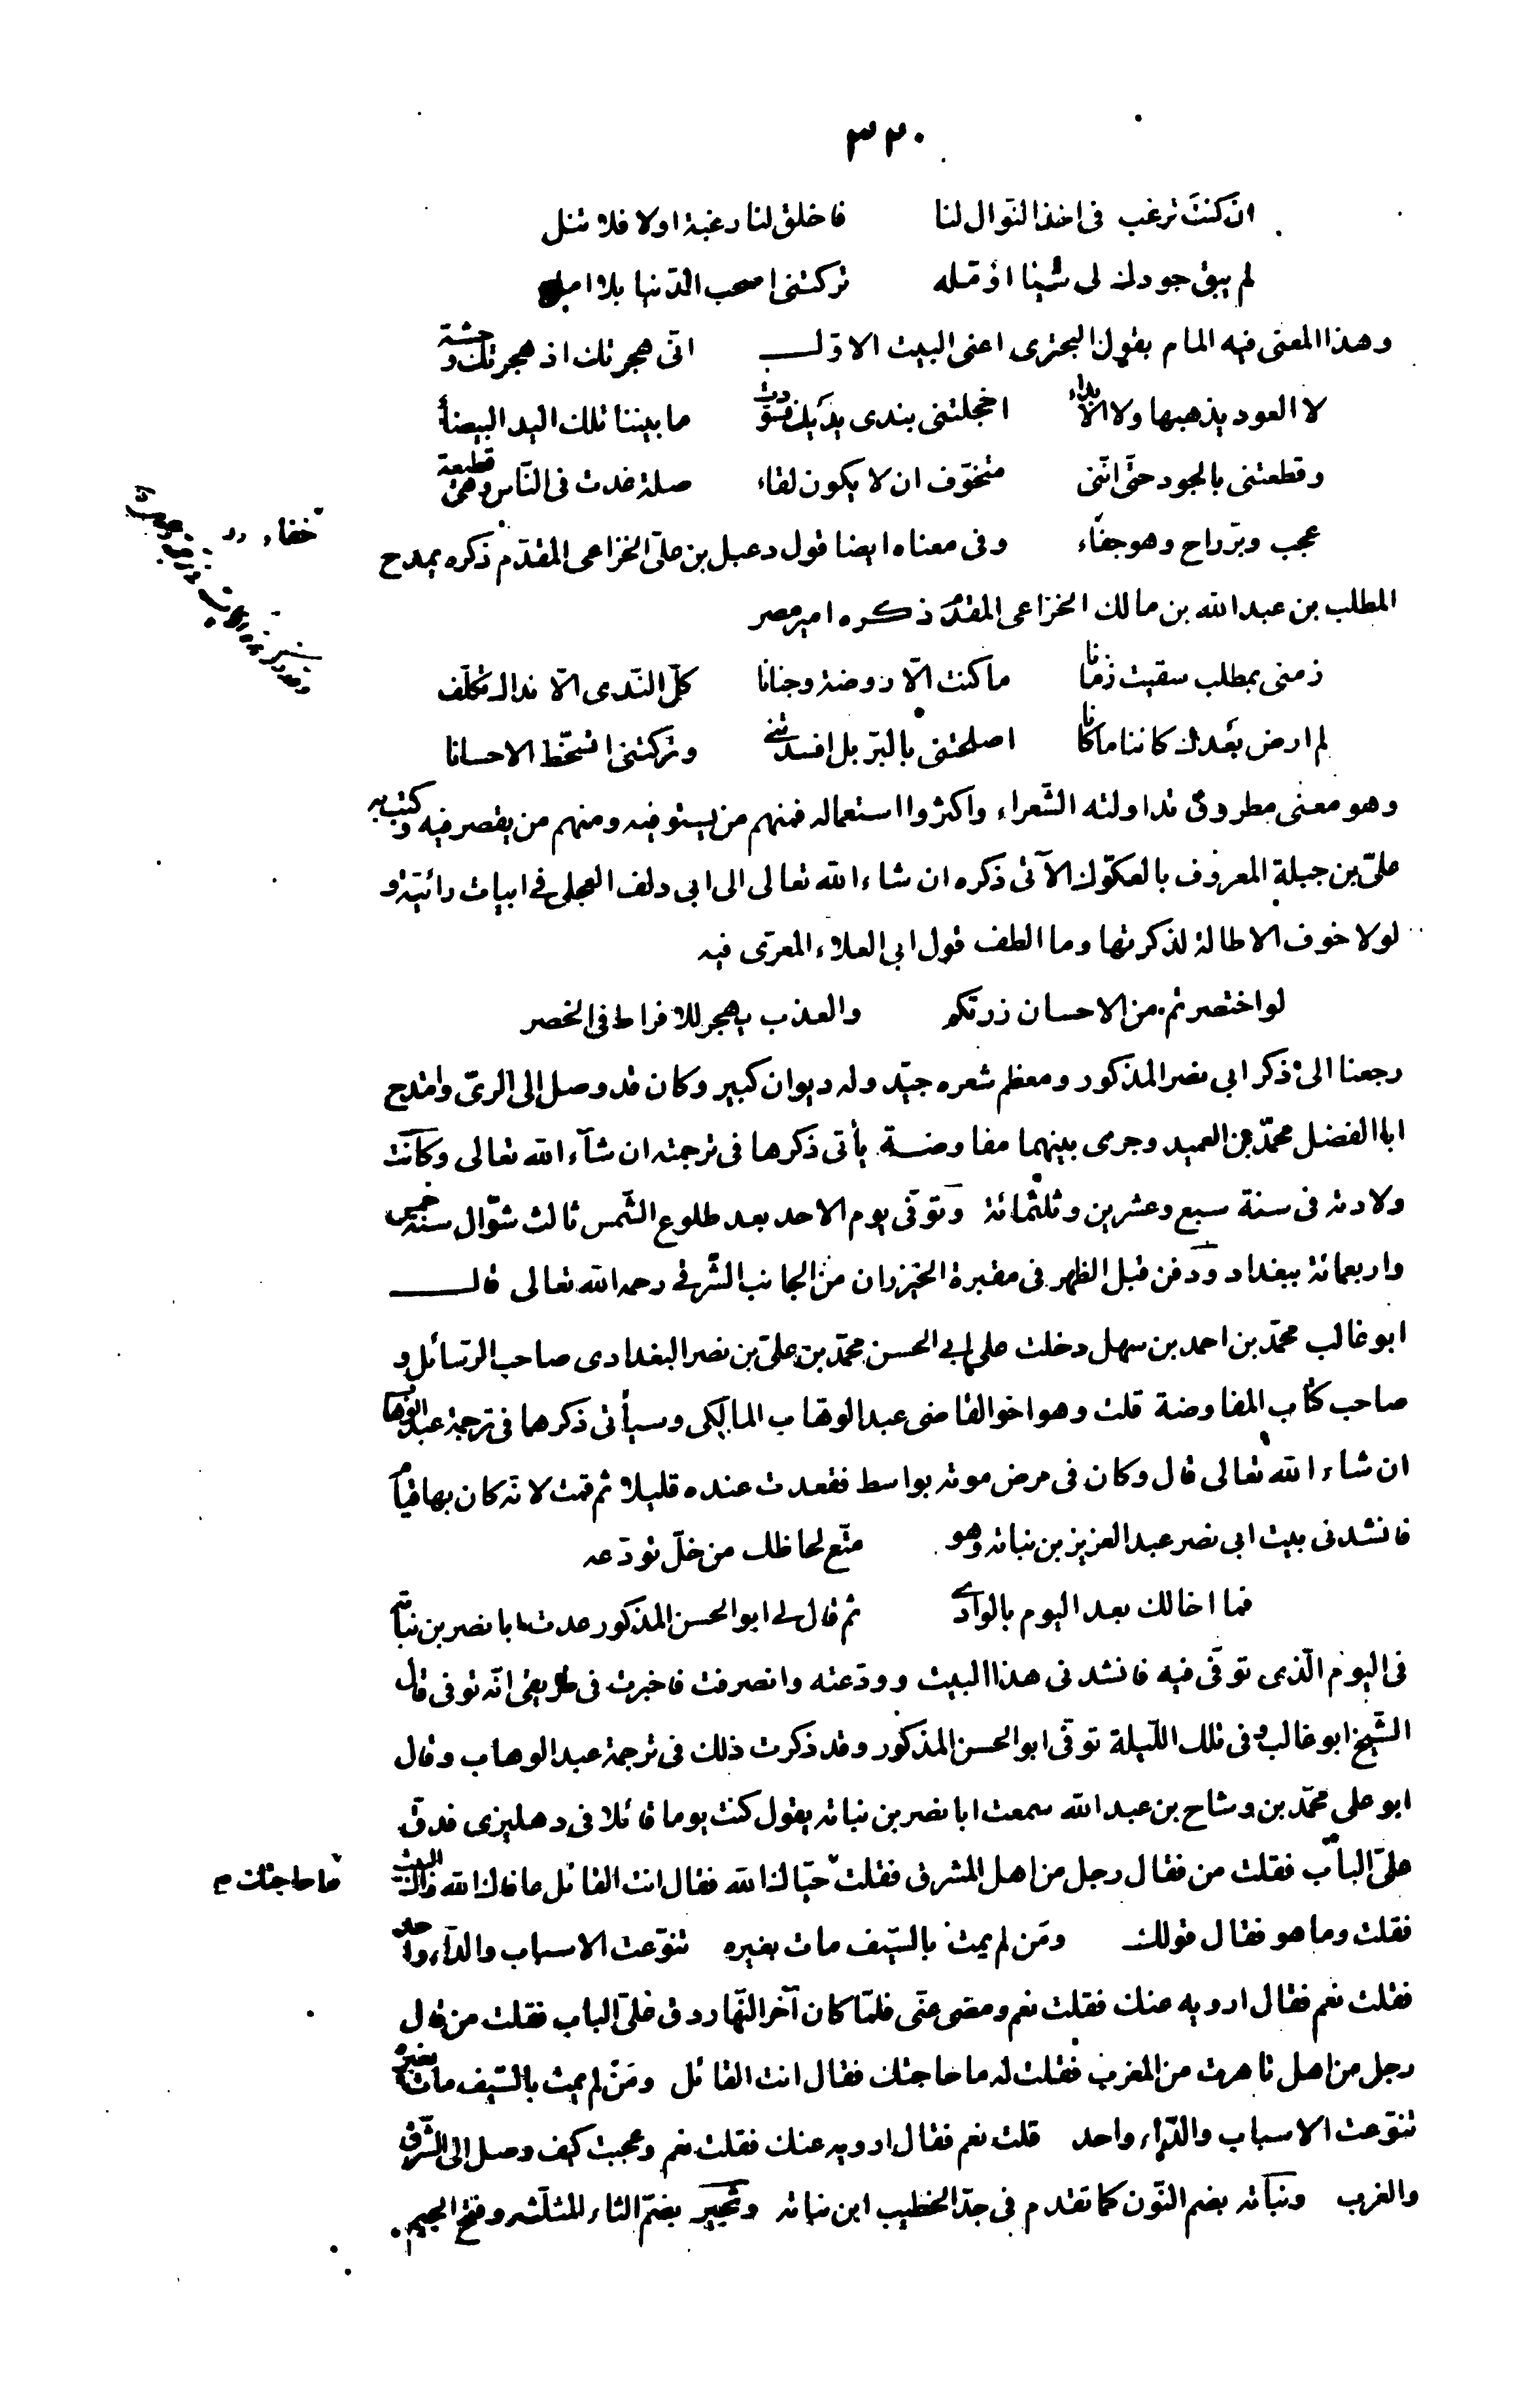 ٣٢٠
ان كنت ترغب فى اخذ النوال لنا فاخلق لنا رغبة اولا فلا تنل
لم يبق جودك لى شيئا اؤمله تركتنى اصحب الدنيا بلا امل
وهذا المعنى فيه المام بقول البحترى اعنى البيت الاول انى هجرتك اذ هجرتك وحشة
لا العود يذهبها ولا الابداء اخجلتنى بندى يديك فسودت ما بيننا تلك اليد البيضاء
وقطعتنى بالجود حتى اننى متخوف ان لا يكون لقاء صلة غدت فى الناس وهى قطيعة
عجب وبر راح وهو جفاء وفى معناه ايضا قول دعبل بن على الخزاعى المقدم ذكره يمدح
المطلب بن عبد الله بن مالك الخزاعى المقدم ذكره امير مصر
زمنى بمطلب سقيت زمانا ما كنت الا روضة وجنانا كل الندى الا نداك تكلف
لم ارض بعدك كائنا ما كانا اصلحتنى بالبر بل افسدتنى وتركتنى اتسخط الاحسانا
وهو معنى مطروق تداولته الشعراء واكثروا استعماله فمنهم من يستوفيه ومنهم من يقصر فيه وكتب به
على بن جبلة المعروف بالعكوك الآتى ذكره ان شاء الله تعالى الى ابى دلف العجلى فى ابيات رائية و
لولا خوف الاطالة لذكرتها وما الطف قول ابى العلاء المعرى فيه
لو اختصرتم من الاحسان زرتكم والعذب يهجر للافراط فى الخصر
رجعنا الى ذكر ابى نصر المذكور ومعظم شعره جيد وله ديوان كبير وكان قد وصل الى الرى وامتدح
ابا الفضل محمد بن العميد وجرى بينهما مفاوضة يأتى ذكرها فى ترجمته ان شآء الله تعالى وكانت
ولادته فى سنة سبع وعشرين وثلثمائة وتوفى يوم الاحد بعد طلوع الشمس ثالث شوال سنة خمس
واربعمائة ببغداد ودفن قبل الظهر فى مقبرة الخيزران من الجانب الشرقى رحمه الله تعالى قال
ابو غالب محمد بن احمد بن سهل دخلت على ابى الحسن محمد بن على بن نصر البغدادى صاحب الرسائل و
صاحب كتاب المفاوضة قلت وهو اخو القاضى عبد الوهاب المالكى وسيأتى ذكرهما فى ترجمة عبد الوهاب
ان شاء الله تعالى قال وكان فى مرض موته بواسط فقعدت عنده قليلا ثم قمت لانه كان بها قيام
فانشدنى بيت ابى نصر عبد العزيز بن نباته وهو متع لحاظك من خل تودعه
فما اخالك بعد اليوم بالوادى ثم قال لى ابو الحسن المذكور عدت ابا نصر بن نباته
فى اليوم الذى توفى فيه فانشدنى هذا البيت وودعته وانصرفت فاخبرت فى طريقى انه توفى قال
الشيخ ابو غالب وفى تلك الليلة توفى ابو الحسن المذكور وقد ذكرت ذلك فى ترجمة عبد الوهاب وقال
ابو على محمد بن وشاح بن عبد الله سمعت ابا نصر بن نباته يقول كنت يوما قائلا فى دهليزى فدق
على الباب فقلت من فقال رجل من اهل المشرق فقلت حياك الله فقال انت القائل عافاك الله
ما حاجتك
فقلت وما هو فقال قولك ومن لم يمت بالسيف مات بغيره تنوعت الاسباب والدآء واحد
فقلت نعم فقال ارويه عنك فقلت نعم ومضى عنى فلما كان آخر النهار دق على الباب فقلت من قال
رجل من اهل تاهرت من المغرب فقلت له ما حاجتك فقال انت القائل ومن لم يمت بالسيف مات بغيره
تنوعت الاسباب والداء واحد قلت نعم فقال ارويه عنك فقلت نعم وعجبت كيف وصل الى الشرق
والغرب ونباته بضم النون كما تقدم فى جد الخطيب ابن نباته وثجير بضم الثاء المثلثه وفتح الجيم